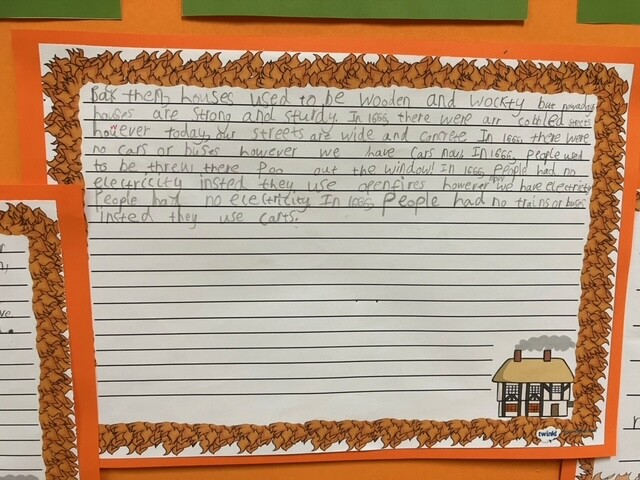 Bak then, houses used to be wooden and wockty but nowadays
houses are strong and sturdy. In 1666, there were are cobbled streets
however today, our streets are wide and concrete. In 1666, there were
no cars or buses however we have cars now. In 1666, people used
to be threw there Poo out the window! In 1666, people had no
electriccity insted they use openfires however we have electricity
People had no electricity. In 1666, People had no trains or buses
insted they use carts.
twinkl